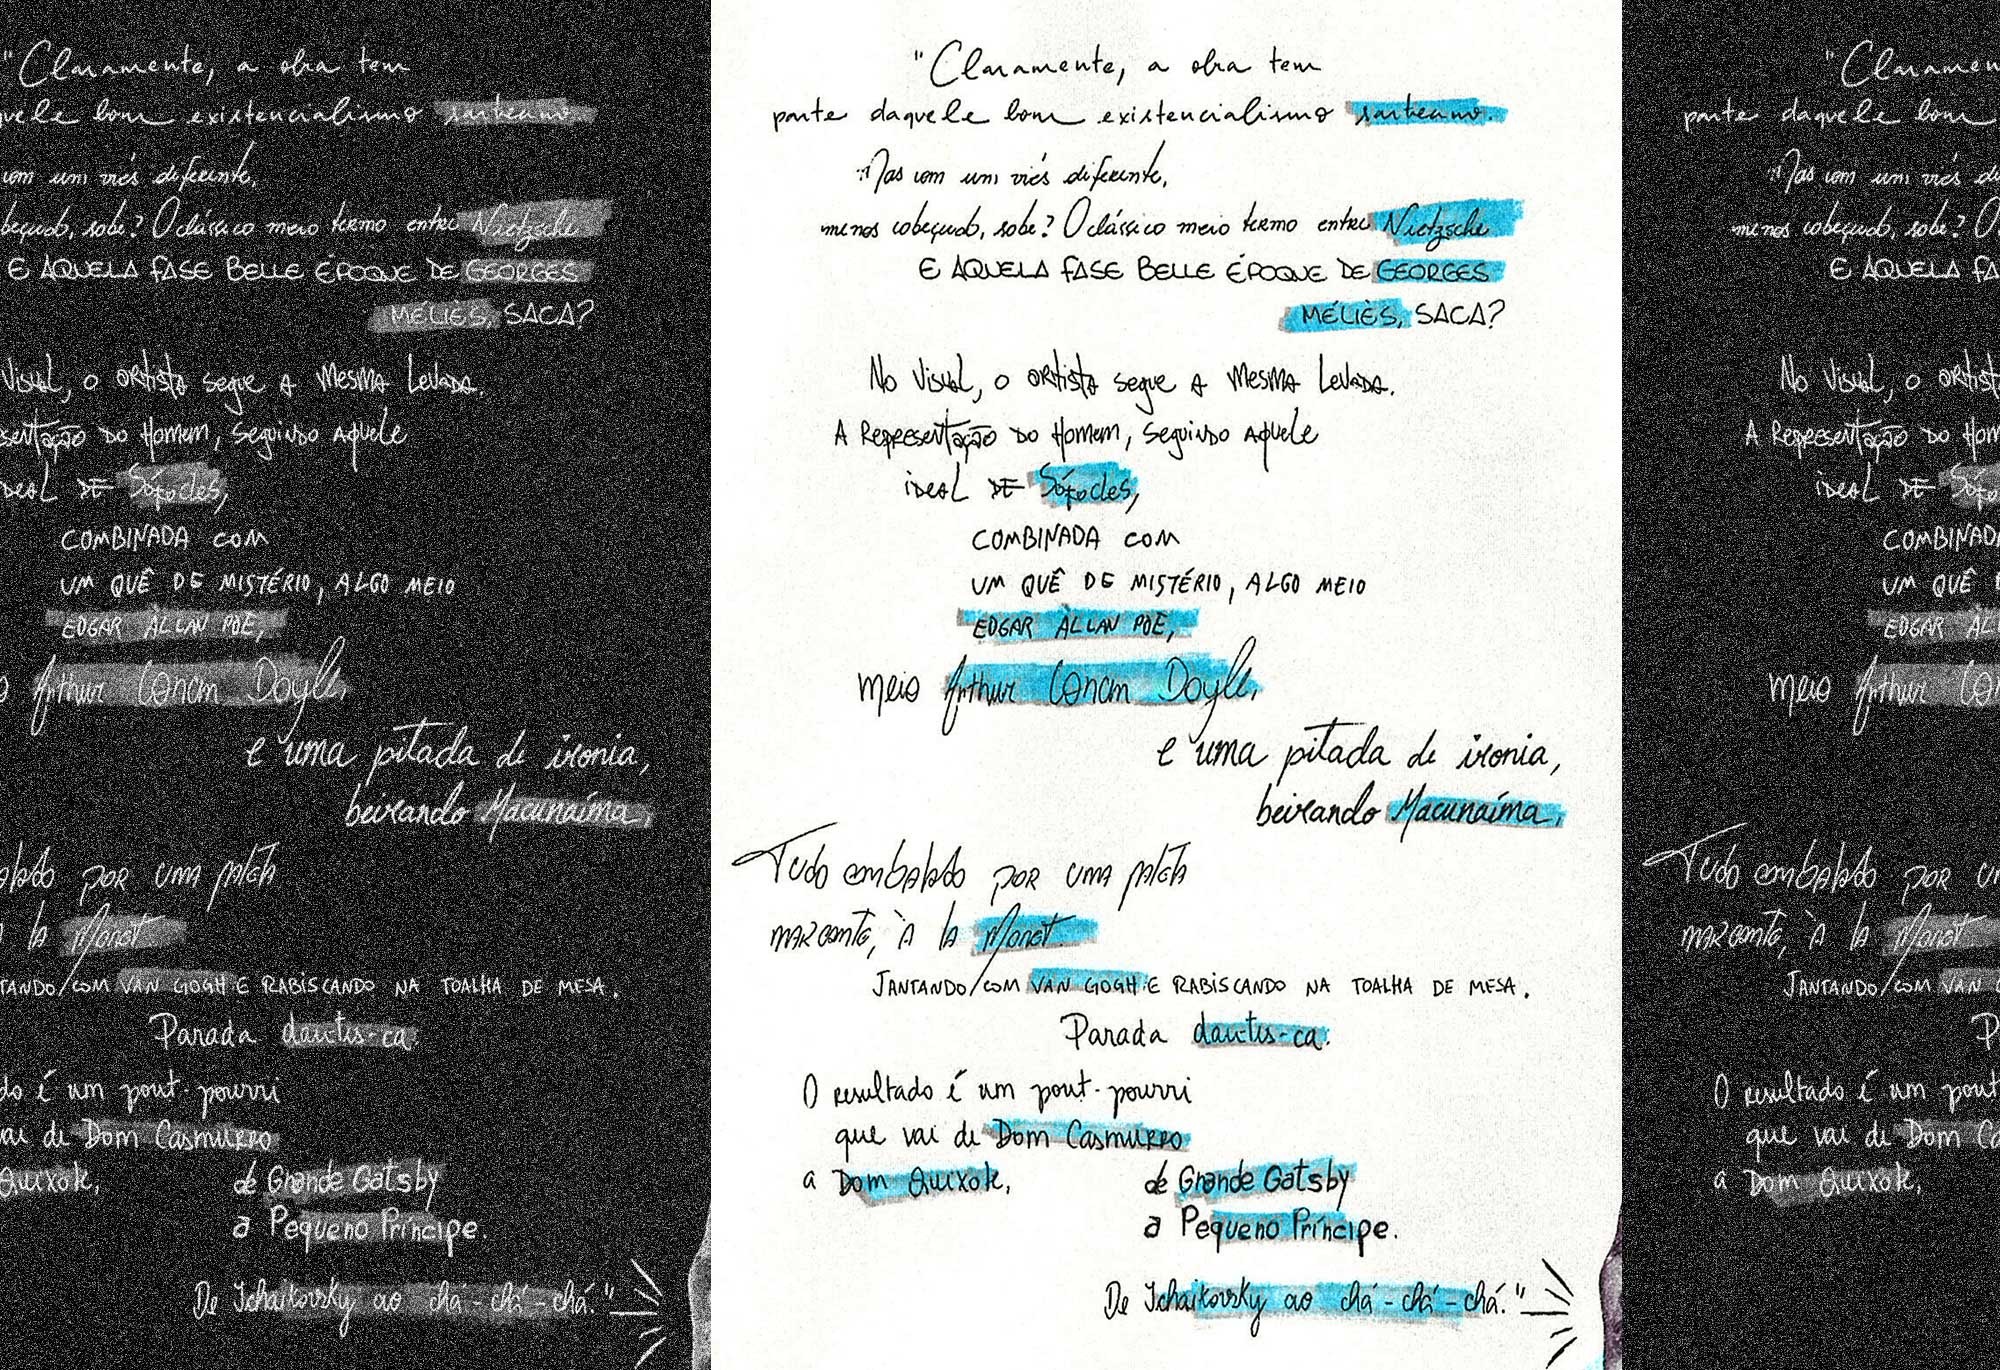 "Claramente, a obra tem
parte daquele bom existencialismo sartreano.
Mas com um viés diferente,
menos cabeçudo, sabe? O clássico meio termo entre Nietzsche
E AQUELA FASE BELLE ÉPOQUE DE GEORGES
MÉLIÈS, SACA?
No visual, o artista segue a mesma levada.
A representação do homem, seguindo aquele
ideal de Sófocles,
COMBINADA COM
UM QUÊ DE MISTÉRIO, ALGO MEIO
EDGAR ALLAN POE,
meio Arthur Conan Doyle,
e uma pitada de ironia,
beirando Macunaíma.
Tudo embalado por uma palheta
marcante, à la Monet.
JANTANDO COM VAN GOGH E RABISCANDO NA TOALHA DE MESA.
Parada dantes-ca.
O resultado é um pout-pourri
que vai de Dom Casmurro
a Dom Quixote,
de Grande Gatsby
a Pequeno Príncipe.
De Tchaikovsky ao chá-chá-chá."